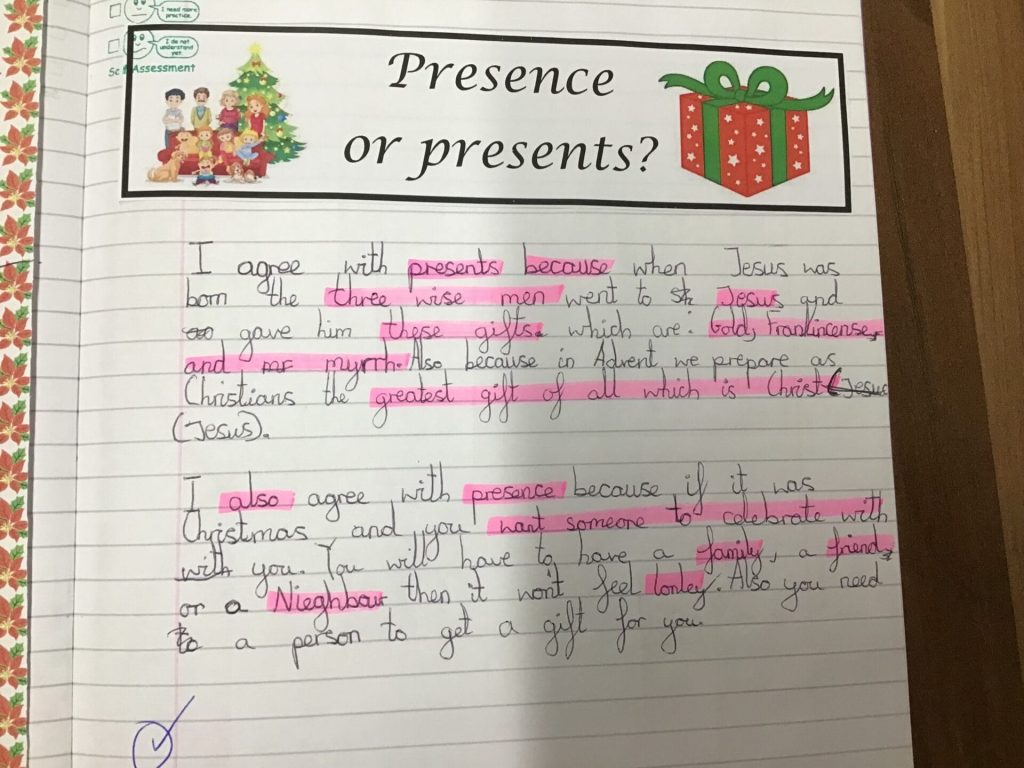 I need more
practice.
I do not
understand
yet.
Assessment
Presence
or presents?
I agree with presents because when Jesus was
born the three wise men went to Jesus and
gave him these gifts. which are: Gold, Frankincense,
and mr myrrh. Also because in Advent we prepare as
Christians the greatest gift of all which is Christ (Jesus
(Jesus).
I also agree with presence because if it was
Christmas and you want someone to celebrate with
with you. You will have to have a family, a friend,
or a Nieghbour then it won't feel lonley. Also you need
to a person to get a gift for you.